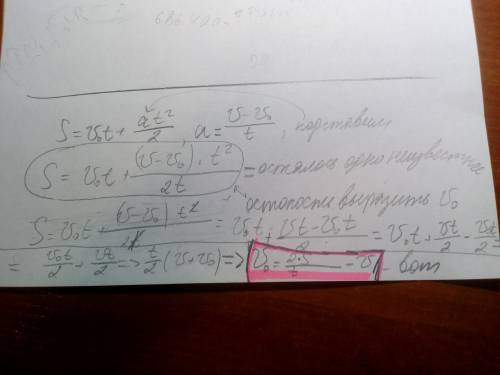 S = v₀t + at²/2, a = (v-v₀)/t, подставим
S = v₀t + (v-v₀)·t²/2t = осталось одно неизвестное
выразить v₀
S = v₀t + (v-v₀)t²/2t = v₀t + (vt-v₀t)/2 = v₀t + vt/2 - v₀t/2 =
= v₀t/2 + vt/2 => t/2 (v+v₀) => v₀ = 2S/t - v - вот